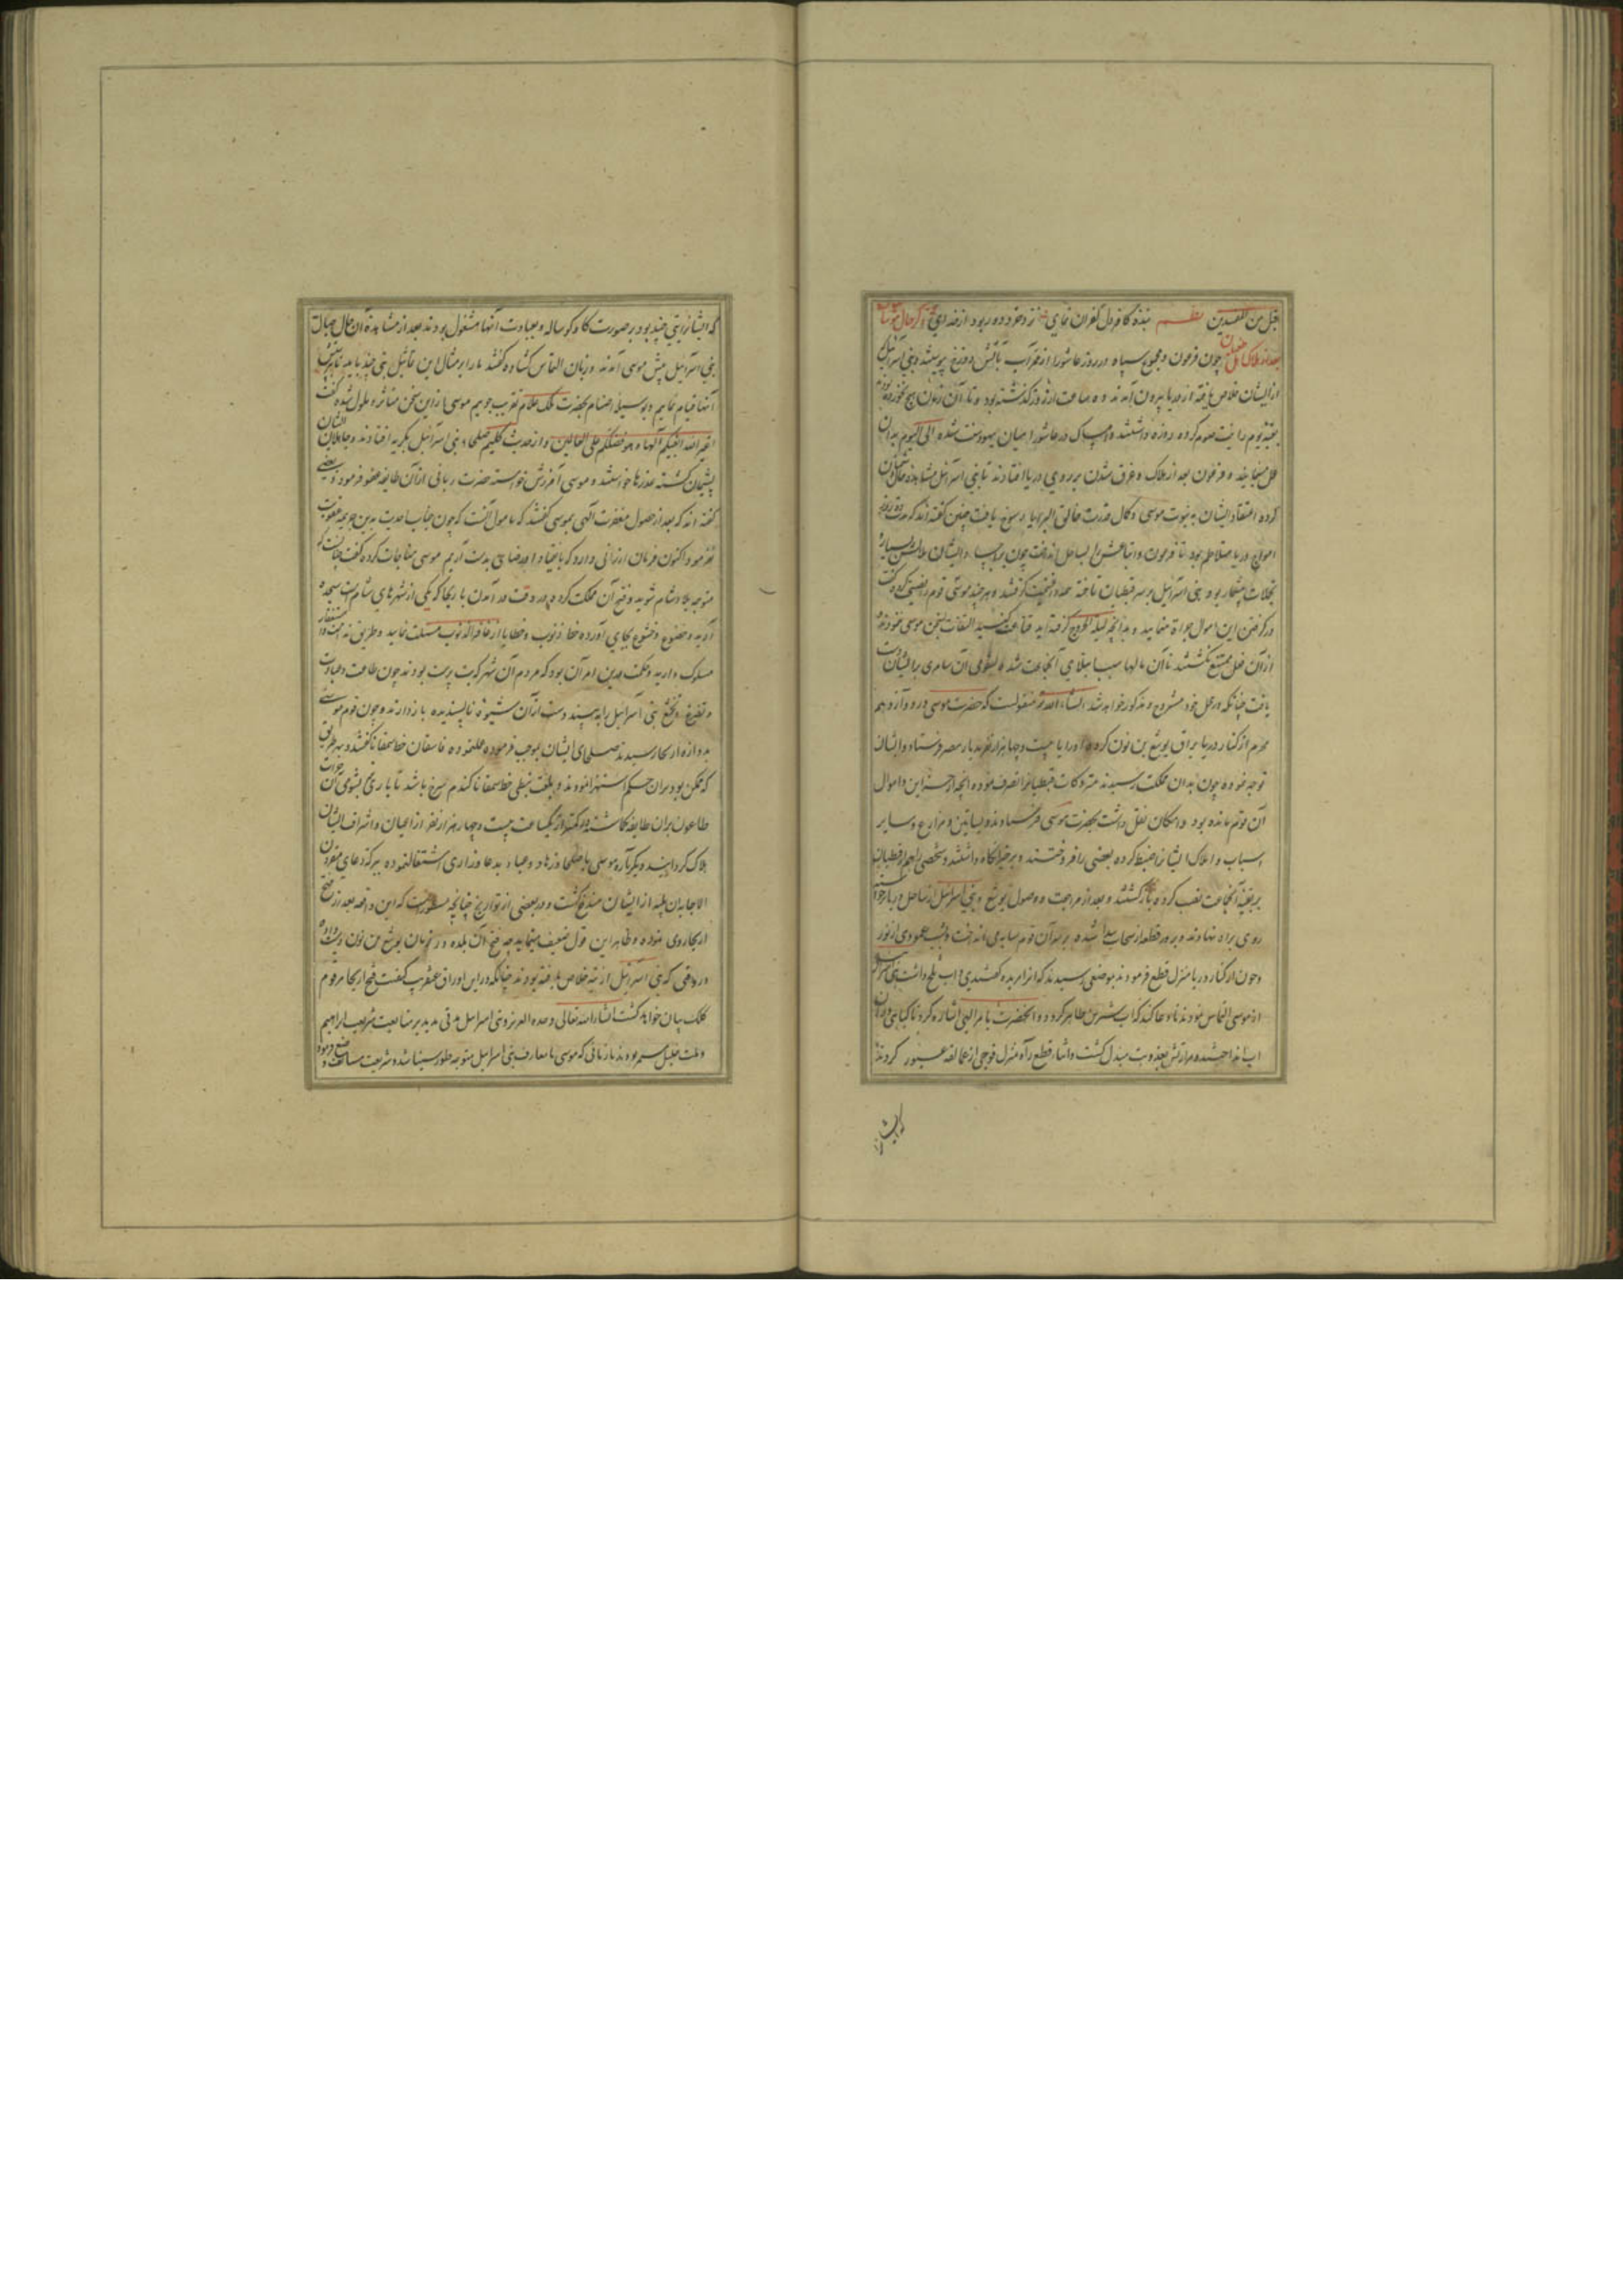 قبل من المفسدین نظم بنده کافر دل کفران نمای
بعد از هلاک چون فرعون و مجموع سپاه در روز عاشورا از قعر آب بآتش دوزخ پیوستند و بنی اسرائیل
از ایشان خلاص یافته از دریا بیرون آمدند و دو ساعت از روز گذشته بود و تا آن زمان هیچ نخورده
بقیه یوم را نیت صوم کرده روزه داشتند و امساک در عاشورا میان یهود سنت شده الی الیوم بدان
عمل مینمایند و فرعون بعد از هلاک و غرق شدن بر روی دریا افتادند تا بنی اسرائیل مشاهده
کرده اعتقاد ایشان به نبوت موسی و کمال قدرت خالق البرایا رسوخ یافت چنین گفته اند که
امواج دریا متلاطم بود تا فرعون و اتباعش را بساحل انداخت چون بر ایشان
تجملات بیشمار بود بنی اسرائیل بر سر قبطیان تاخته غنیمت گرفتند و هر چند موسی قوم را نصیحت کرده گفت
در گرفتن این اموال مینمایید و بدانچه لیلة الخروج گرفته اید قناعت کنید التفات بسخن موسی ننموده
از آن فعل ممتنع نگشتند تا آن مالها سبب ابتلای آنجماعت شد و آن سامری بر ایشان دست
یافت چنانکه در محل خود مشروح و مذکور خواهد شد انشاء الله منقولست که حضرت موسی در دوازدهم
محرم از کنار دریا یوشع بن نون کرده او را با بیست و چهار هزار نفر بدیار مصر فرستاد و ایشان
توجه نموده چون بدان مملکت رسیدند متروکات قبطیان را تصرف نموده آنچه از خزاین و اموال
آن قوم مانده بود و امکان نقل داشت بحضرت موسی فرستادند و بساتین و مزارع و سایر
اسباب و املاک ایشان را ضبط کرده بعضی را فروختند و برخی نگاه داشتند و شخصی را هم از قبطیان
بر بقیه آنجماعت نصب کرده بازگشتند و بعد از مراجعت و وصول یوشع و بنی اسرائیل از ساحل دریا
روی براه نهادند و بروز قطعه از سحاب پیدا شده بر سر آن قوم سایه می انداخت و شب عمودی از نور
و چون از کنار دریا منزل قطع فرمودند بموضعی رسیدند که آنرا مریده گفتندی و آب تلخ داشت بنی اسرائیل
از موسی التماس نمودند تا دعا کند که آب شیرین ظاهر گردد و آنحضرت بامر الهی اشاره کرد تا گیاهی در آن
آب انداختند مرارتش بعذوبت مبدل گشت و اثنای قطع راه و منزل فوجی از عمالقه عبور کردند
که ایشان را
که ایشان را بتی چند بود بر صورت گاو و گوساله و بعبادت آنها مشغول بودند بعد از مشاهده آن حال جهال
بنی اسرائیل پیش موسی آمدند و زبان التماس گشاده گفتند ما را بر مثال این تماثیل بتی چند باید تا
آنها قیام نماییم و بوسیله اصنام بحضرت ملک علام تقرب جوییم موسی از این سخن متاثر و ملول شده گفت
اغیر الله ابغیکم آلها و هو فضلکم علی العالمین و از حدیث کلیم صلحاء بنی اسرائیل بگریه افتادند و جاهلان ایشان
پشیمان گشته عذرها خواستند و موسی آمرزش خواسته حضرت ربانی از آن طایفه عفو فرمود و بعضی
گفته اند که بعد از حصول مغفرت الهی بموسی گفتند که مامول آنست که چون جناب احدیت بدین جریمه عقوبت
نفرمود اکنون فرمان ارزانی دارد که موسی مناجات کرده گفت
متوجه بلاد شام شوید و فتح آن مملکت کرده در وقت در آمدن باریحا که یکی از شهرهای شام است سجده
آرید و خضوع و خشوع بجای آورده حط ذنوب و خطایا از غافر الذنوب مسئلت نمایید و طریق
مسلوک دارید و حکمت بدین امر آن بود که مردم آن شهر که بت پرست بودند چون طاعت و عبادت
و تضرع و تخشع بنی اسرائیل را به بینند دست از آن شیوه ناپسندیده باز دارند و چون قوم موسی
بدروازه اریحا رسیدند صلحای ایشان بموجب فرموده عمل نموده فاسقان حطا سمقاتا گفتند
که ممکن بود بدان حکم استهزا نمودند و بلغت نبطی حطا سمقاتا گندم سرخ باشد تا باری
طاعون بر آن طایفه گماشت و در کمتر از یکساعت بیست و چهار هزار نفر از اعیان و اشراف ایشان
هلاک گردانید و دیگر باره موسی با صلحا و زهاد و عباد بدعا و زاری اشتغال نموده ببرکت دعای مقرون
الاجابه آن بلیه از ایشان مندفع گشت و در بعضی از تواریخ چنانچه مسطور است که این واقعه بعد از فتح
اریحا روی نموده و ظاهر این قول ضعیف مینماید چه فتح آن بلده در زمان یوشع بن نون دست داده
در وقتی که بنی اسرائیل از تیه خلاص یافته بودند چنانکه در این اوراق عنقریب کیفیت فتح اریحا مرقوم
کلک بیان خواهد گشت انشاء الله تعالی وحده العزیز و بنی اسرائیل مدتی مدید بر متابعت شریعت ابراهیم
و ملت خلیل مستمر بودند تا زمانی که موسی با معارف بنی اسرائیل متوجه طور سینا شده شریعت